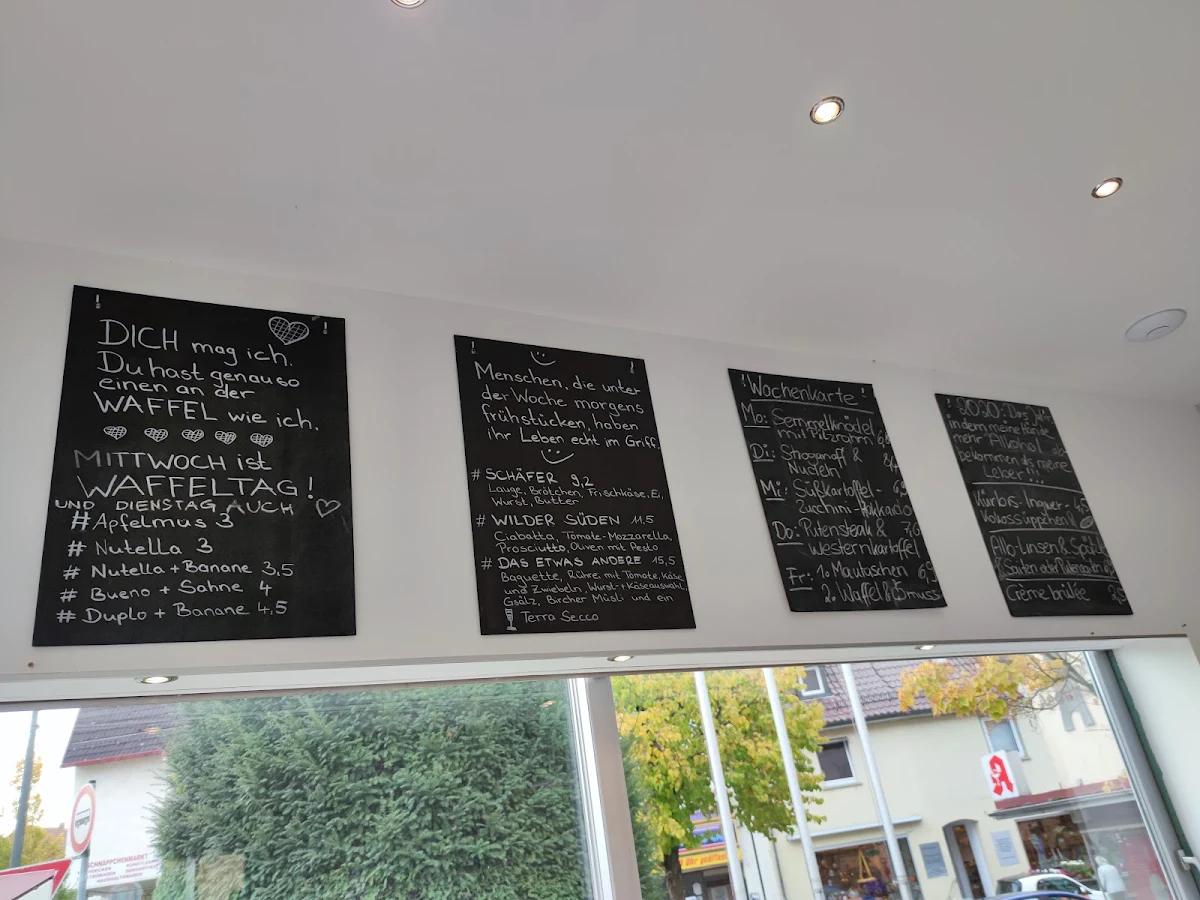 DICH mag ich.
Du hast genauso
einen an der
WAFFEL wie ich.
MITTWOCH ist
WAFFELTAG!
UND DIENSTAG AUCH
#Apfelmus 3
# Nutella 3
# Nutella + Banane 3,5
# Bueno + Sahne 4
# Duplo + Banane 4,5
Menschen, die unter
der Woche morgens
frühstücken, haben
ihr Leben echt im Griff.
# SCHÄFER 9,2
Lauge, Brötchen, Frischkäse, Ei,
Wurst, Butter
# WILDER SÜDEN 11,5
Ciabatta, Tomate-Mozzarella,
Prosciutto, Oliven mit Pesto
# DAS ETWAS ANDERE 15,5
Baguette, Rührei mit Tomate, Käse
und Zwiebeln, Wurst-+Käseauswahl,
Gsälz, Bircher Müsli und ein
Terra Secco
Wochenkarte
Mo: Semmelknödel
mit Pilzrahm
Di: Stroganoff &
Nudeln
Mi: Süßkartoffel-
Zucchini-
Do: Putensteak &
Westernkartoffel
Fr: 1. Maultaschen 6,5
2. Waffel & Apfelmus
2020: Das Jahr
in dem meine Hände
mehr Alkohol
bekommen als meine
Leber!!!
Kürbis-Ingwer- 4,5
Kokossüppchen
Alb-Linsen & Spätzle
Creme brulee 3,5
SCHNÄPPCHENMARKT
Uhr geöffnet